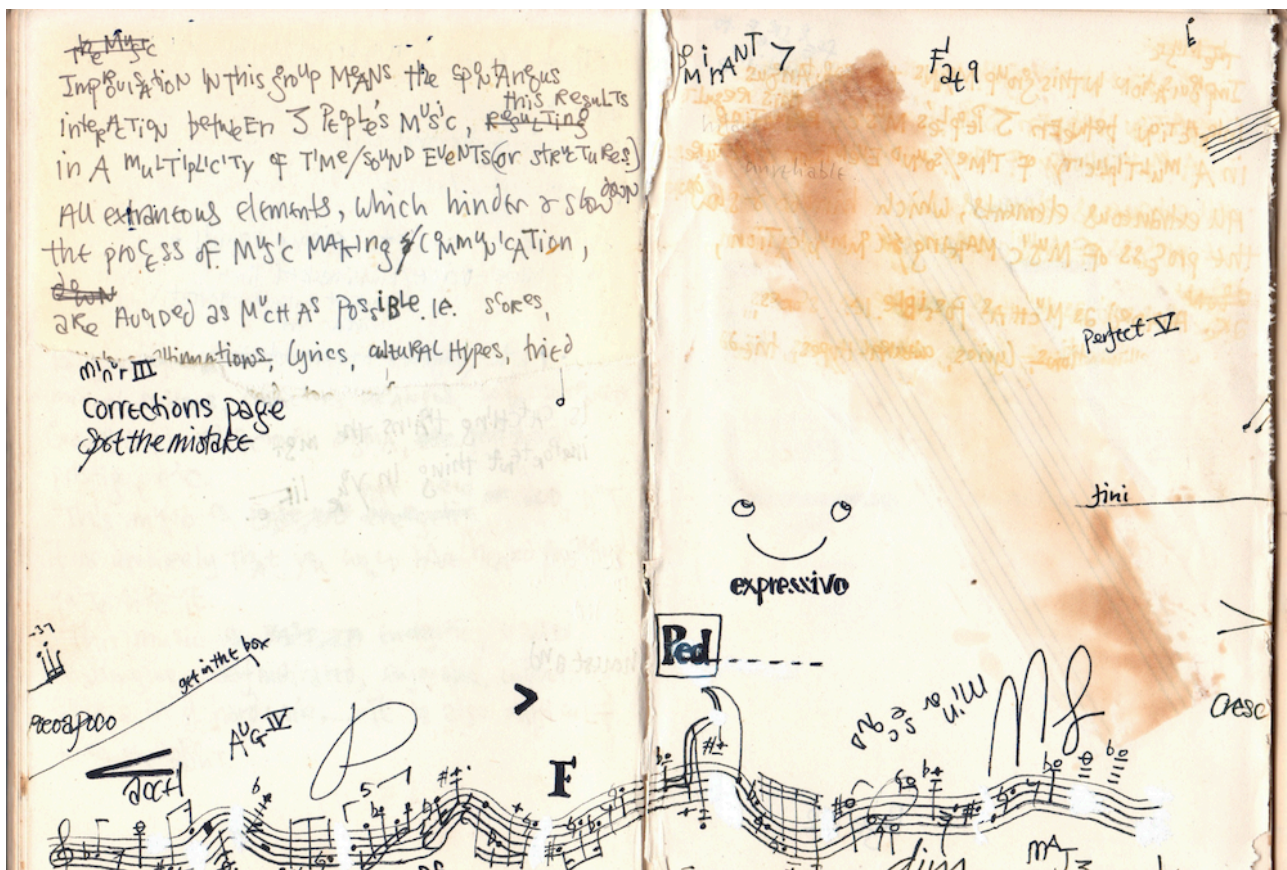 The Music
Improvisation in this group means the spontaneous
interaction between 3 people's music, resulting this results
in a multiplicity of time/sound events (or structures)
All extraneous elements, which hinder & slow down
the process of music making & communication,
down
are avoided as much as possible. ie. scores,
lyrics, cultural hypes, tried
minor III
corrections page
spot the mistake
is catching trains the most
important thing in yr life
get in the box
poco a poco
AUG IV
>
F
5
DOMINANT 7
Flat 9
perfect V
fini
expressivo
Ped
minor second
Mf
cresc
dim
MAJ 3